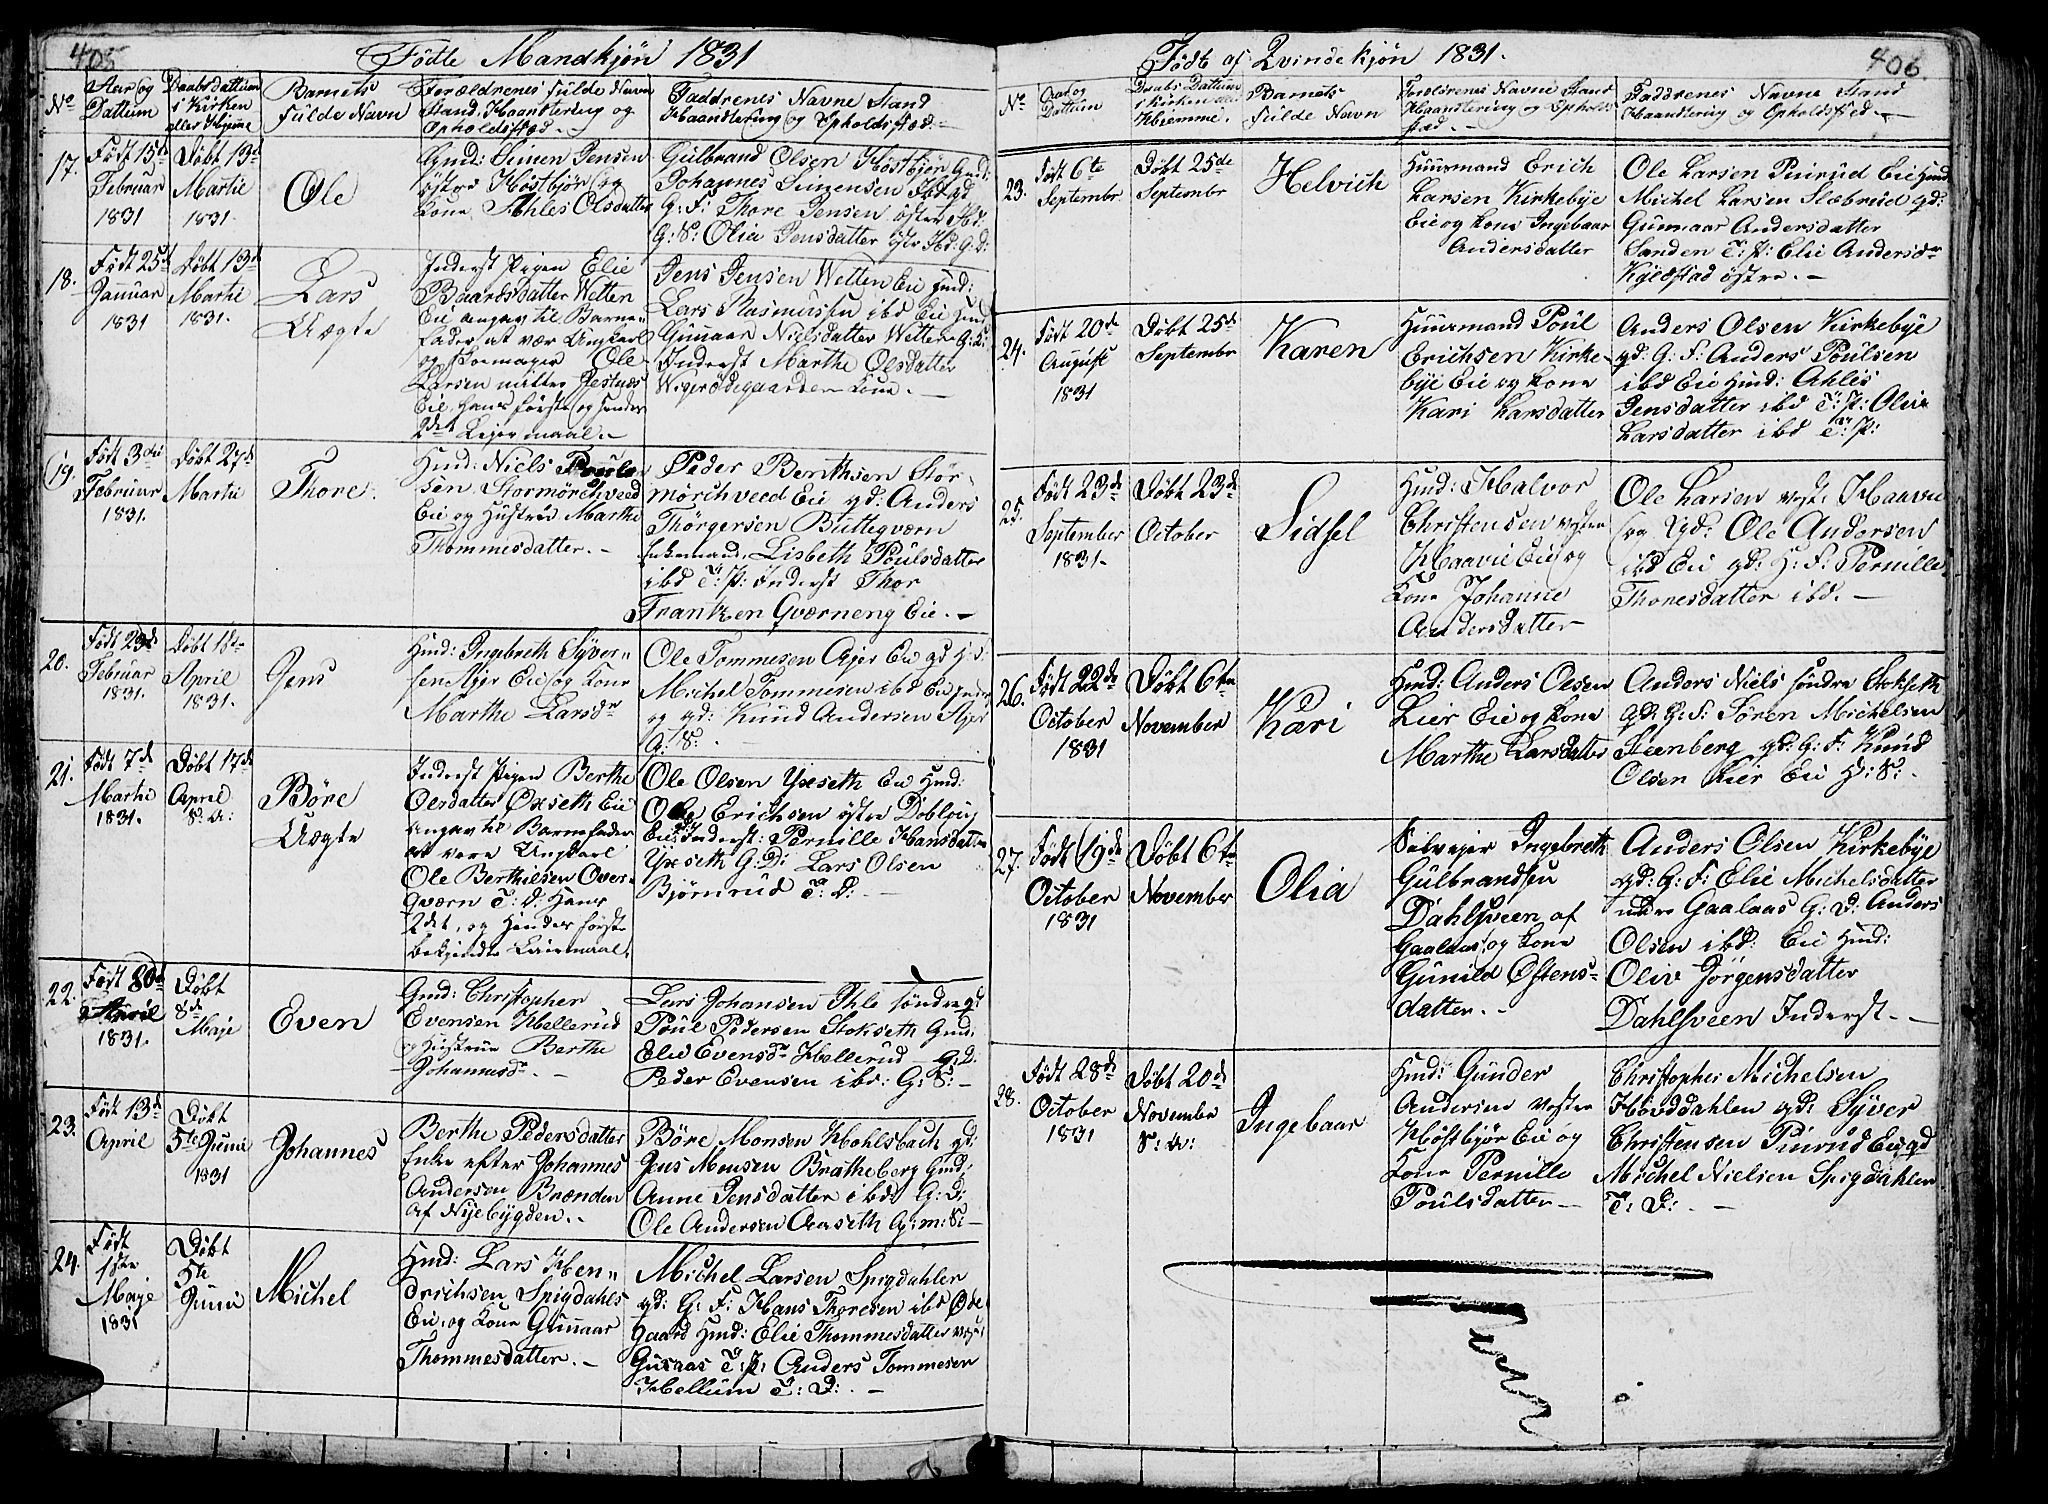 405
Födte Mandkjön 1831
No
Aar og
Dattum
Daabsdattum
i Kirken
eller Hjeme
Barnets
Fulde Navn
Forældrenes fulde Navn
Stand, Haandtering og
Opholdssted. -
Faddrenes Navne Stand
Haandtering og Opholdssted. -
17.
Født 15de
Februar
1831
Døbt 13de
Martii
1831.
Ole
Gmd: Simen Jensen
østre Høstbjør og
Kone Ahles Olsdatter
Gulbrand Olsen Høstbjør Gmd:
Johannes Simensen ibd gd
G: F: Thore Jensen østre Hb:
G: S: Olia Jensdatter østr Hb: G: D:
18.
Født 25de
Januar
1831
Døbt 13de
Martii
1831.
Lars
Uægte
Inderst Pigen Elie
Baardsdatter Wetten
Eie angav til Barne-
fader at vær Ungkarl
og Skomager Ole
Larsen
Eie, hans første og hendes
2det Leiermaal. -
Jens Jensen Wetten Eie Hmd:
Lars Rasmussen ibd Eie Hmd
Gunnar Nielsdatter Wetten G: K:
Inderst Marthe Olsdatter
Wiger Ødegaarden Kone. -
19.
Født 3die
Februar
1831.
Døbt 27de
Martii
Thore.
Hmd: Niels Pouls
sen Stormörchveed
Eie og Hustrue Marthe
Thommesdatter. -
Peder Bernthsen Stor-
mörchveed Eie gd: Anders
Thörgersen Buttegværn
Enkemand, Lisbeth Poulsdatter
ibd T: P: Inderst Thor
Frantzen Gværneng Eie. -
20.
Født 23de
Februar
1831.
Døbt 1ste
April
1831.
Jens
Hmd: Ingebreth Syver-
sen Ajer Eie og Kone
Marthe Larsdr
Ole Tommesen Ajer Eie gd H: F:
Michel Tommesen ibd Eie
og gd: Knud Andersen Ajer
G: S: -
21.
Født 7de
Martii
1831.
Døbt 17de
April
S: A:
Böre
Uægte
Inderst Pigen Berthe
Olsdatter Øxseth Eie
angav til Barnefader
at være Ungkarl
Ole Berthelsen Over-
gværn T: D: Hans
2det, og Hendes første
bekjendte Leiermaal.
Ole Olsen Yxseth Eie Hmd:
Ole Erichsen østre Döblouy
Eie Inderst: Pernille Hansdatter
Yxseth G: D: Lars Olsen
Björnrud T: D: -
22.
Født 30de
April
1831.
Døbt
8de
Maje
Even
Gmd: Christopher
Evensen Hellerud
og Hustrue Berthe
Johannesdr. -
Lars Johansen Ihle söndre gd
Poul Pedersen Stokseth Gmd.
Elie Evensdr Hellerud - G: D:
Peder Evensen ibd: G: S: -
23.
Født 13de
April
Døbt
5te Juni
1831
Johannes
Berthe Pedersdatter
Enke efter Johannes
Andersen Brænden
af Nyebygden. -
Böre Monsen Kohlsbach gd:
Jens Monsen Bratheberg Gmd:
Anne Jensdatter ibd: G: D:
Ole Andersen Aaseth Gm: S: -
24.
Født
1ste
Maje
1831
Døbt
5te
Juni
Michel
Hmd: Lars Hen-
drichsen Spigdahls
Eie, og Kone Gunnar
Thommesdatter. -
Michel Larsen Spigdahlen
gd: G: F: Hans Thoresen ibd Øde
gaard Hmd: Elie Thommesdatter
T: P: Anders Tommesen
Hellum T: D: -
406
Födt af Qvindekjön 1831.
No
Aar og
Dattum
Daabs Dattum
i Kirken eller
Hiemme.
Barnets
Fulde Navn
Foreldrenes Navne Stand
Haandtering og Ophold-
sted. -
Faddrenes Navne Stand
Haandtering og Opholdssted. -
23.
Født 6te
Septembr
Døbt 25de
Septembr
Helvich
Huusmand Erich
Larsen Kirkebye
Eie og Kone Ingebaar
Andersdatter
Ole Larsen Peirud Eie Hmd
Michel Larsen Slæbrud gd:
Gunnaar Andersdatter
Sanden T: P: Elie Andersdr
Kyldstad østre. -
24.
Født 20de
August
1831
Døbt 25de
Septembr
Karen
Huusmand Poul
Erichsen Kirke-
bye Eie og Kone
Kari Larsdatter
Anders Olsen Kirkebye
gd: G: F: Anders Poulsen
ibd Eie Hmd: Ahles
Jensdatter ibd T: P: Olia
Larsdatter ibd T: P:
25.
Født 23de
September
1831.
Døbt 23de
October
Sidsel
Hmd: Halvor
Christensen vestre
Haavie Eie og
Kone Johanne
Andersdatter
Ole Larsen vest: Haavie
og gd: Ole Andersen
ibd Eie gd: H: F: Pernille
Thoresdatter ibd. -
26.
Født 22de
October
1831
Døbt 6te
November
Kari
Hmd: Anders Olsen
Lier Eie og Kone
Marthe Larsdatter
Anders Niels söndre Stokseth
gd: G: F: Sören Michelsen
Steenberg gd: G: F: Knud
Olsen Lier Eie H: S: -
27.
Født 19de
October
1831
Døbt 6te
November
Olia
Selvejer Ingebreth
Gulbrandsen
Dahlsveen af
Gaalaas og Kone
Gunild Östens-
datter. -
Anders Olsen Kirkebye
gd: G: F: Elie Michelsdatter
Gaalaas G: D: Anders
Olsen ibd: Eie Hmd:
Oliv Jörgensdatter
Dahlsveen Inderst. -
28.
Født 28de
October
1831
Døbt 20de
November
S: A:
Ingebaar
Hmd: Gunder
Andersen vestre
Høstbjør Eie og
Kone Pernille
Poulsdatter -
Christopher Michelsen
Hövddahlen gd: Syver
Christensen Pinrud Eie gd
Michel Nielsen Spigdahlen
T: D: -